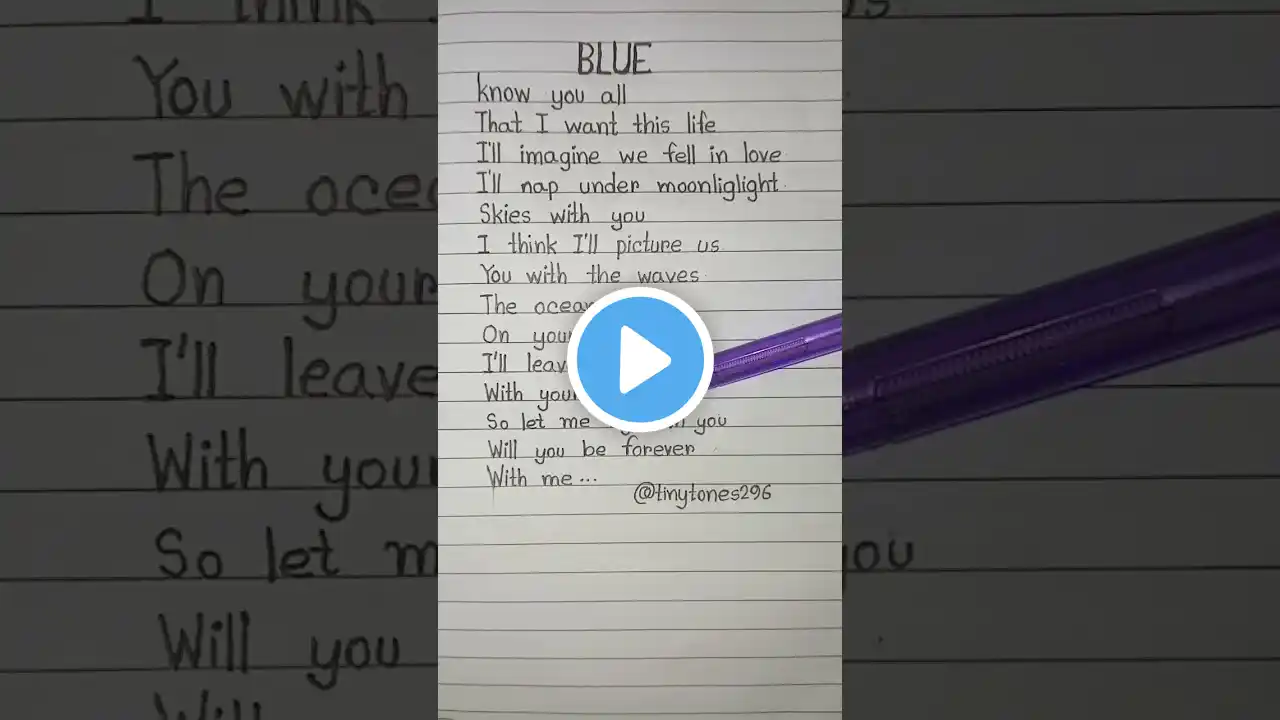 BLUE
know you all
That I want this life
I'll imagine we fell in love
I'll nap under moonliglight
Skies with you
I think I'll picture us
You with the waves
The ocean
On your
I'll leave
With your
So let me you
Will you be forever
With me...
@tinytones296